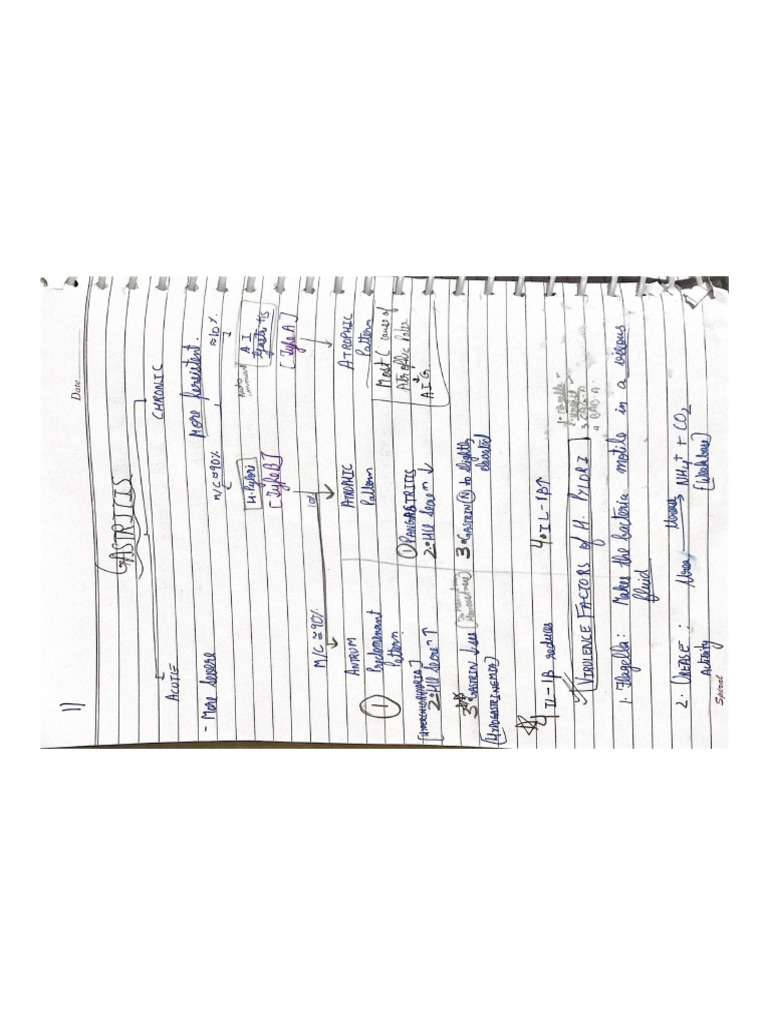 Date
1)
GASTRITIS
ACUTE
CHRONIC
- More severe
More persistent.
M/C ≈ 90%
≈10%
H-Pylori
auto immune
A I Gastritis
[Type B]
[Type A]
M/C ≈ 90%
10%
ANTRUM
Predominant
Pattern
ATROPHIC
Pattern
ATROPHIC
Pattern
Most C cause of
AIG
① 
[HYPERCHLORHYDRIA]
2. HCl secren ↑
① PANGASTRITIS
2. HCl secren ↓
3 GASTRIN ↓ses
[HYPOGASTRINEMIA]
3. GASTRIN (N) to slightly
elevated
4 IL-1β reduces
4. IL-1β↑
VIRULENCE FACTORS of H. PYLORI
1. Flagella
3 CAG-A
4 BAB-A
1. Flagella : Makes the bacteria motile in a viscous
fluid
2. UREASE : Urea → Urease NH4+ + CO2
Activity [Weak base]
Spiral